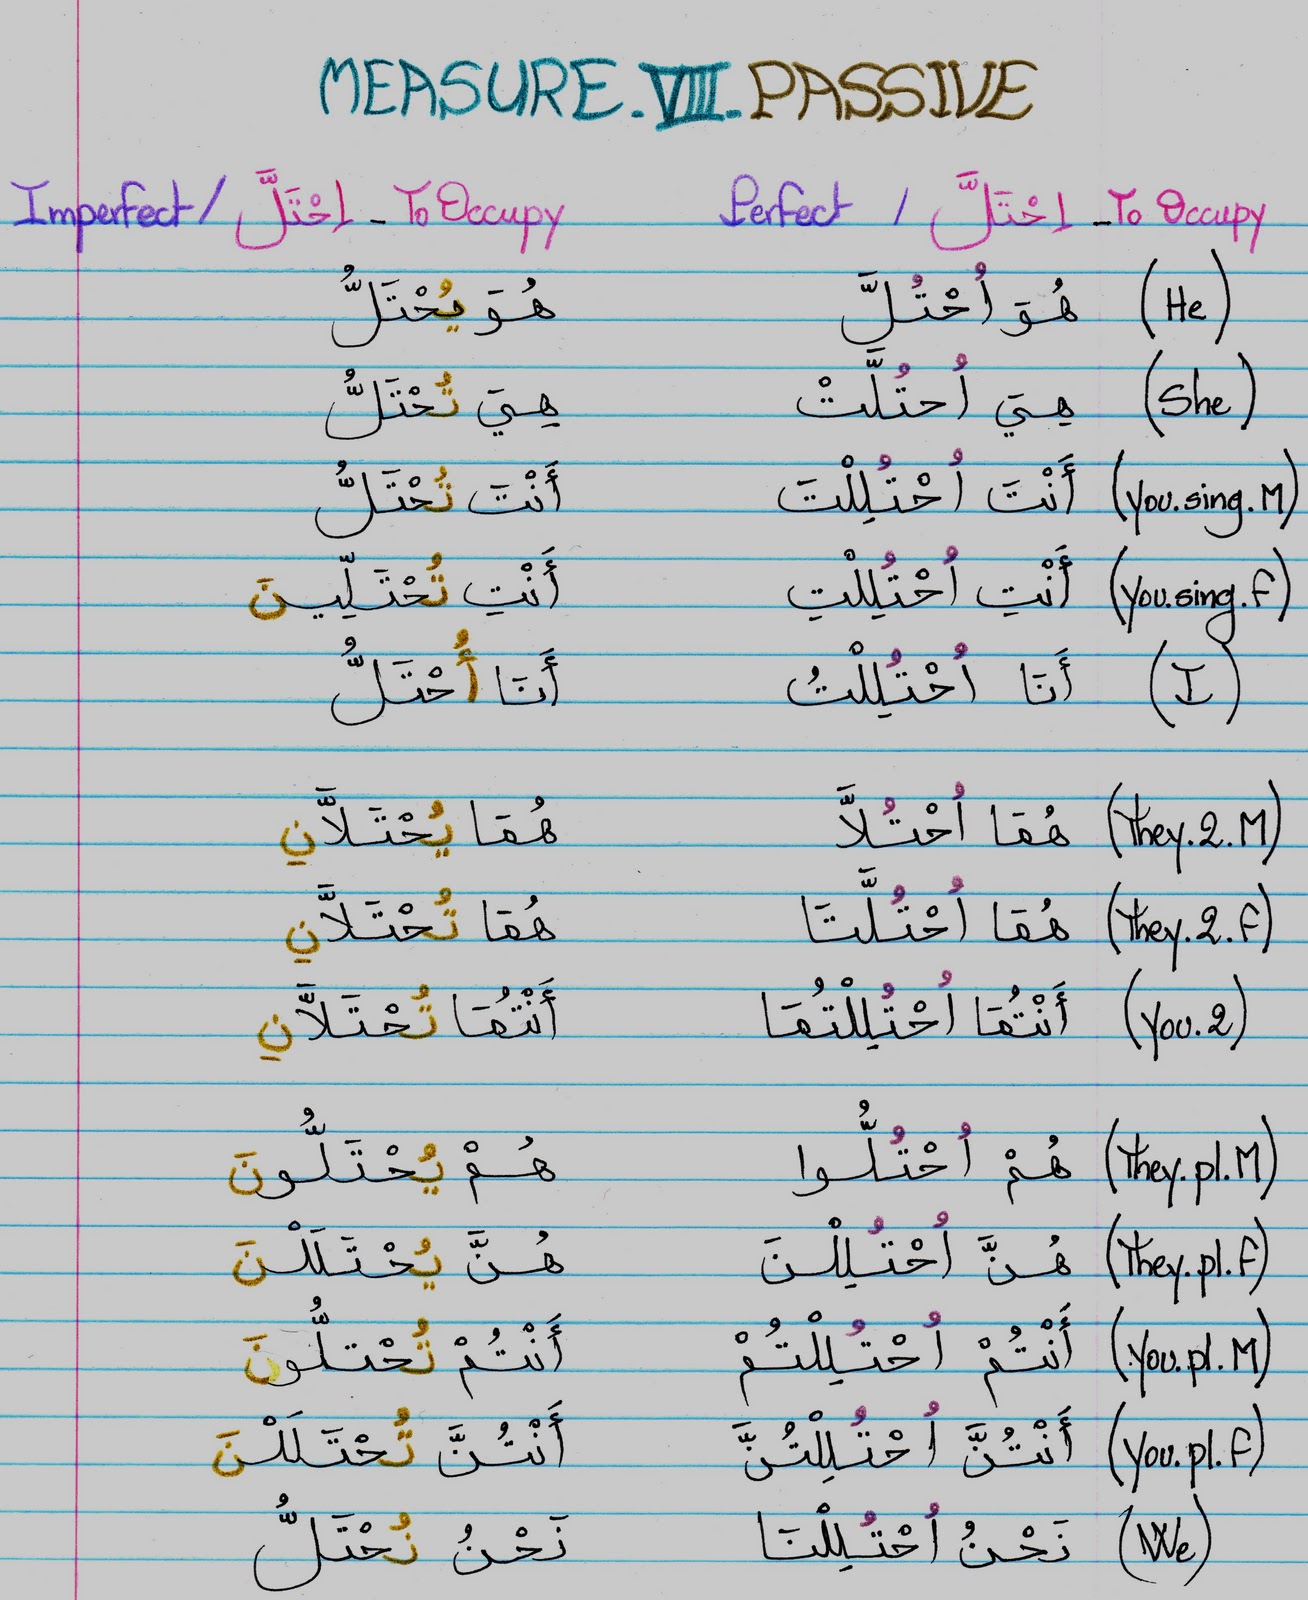 MEASURE.VIII.PASSIVE
Imperfect / اِحْتَلَّ - To Occupy Perfect / اِحْتَلَّ - To Occupy
(He) هُوَ اُحْتُلَّ هُوَ يُحْتَلُّ
(She) هِيَ اُحتُلَّتْ هِيَ تُحْتَلُّ
(you.sing.M) أَنْتَ اُحْتُلِلْتَ أَنْتَ تُحْتَلُّ
(you.sing.F) أَنْتِ اُحْتُلِلْتِ أَنْتِ تُحْتَلِّينَ
(I) أَنَا اُحْتُلِلْتُ أَنَا أُحْتَلُّ
(They.2.M) هُمَا اُحْتُلاَّ هُمَا يُحْتَلاَّنِ
(They.2.F) هُمَا اُحْتُلَّتَا هُمَا تُحْتَلاَّنِ
(you.2) أَنْتُمَا اُحْتُلِلْتُمَا أَنْتُمَا تُحْتَلاَّنِ
(They.pl.M) هُمْ اُحْتُلُّوا هُمْ يُحْتَلُّونَ
(They.pl.F) هُنَّ اُحْتُلِلْنَ هُنَّ يُحْتَلَلْنَ
(you.pl.M) أَنْتُمْ اُحْتُلِلْتُمْ أَنْتُمْ تُحْتلُّونَ
(you.pl.F) أَنْتُنَّ اُحْتُلِلْتُنَّ أَنْتُنَّ تُحْتَلَلْنَ
(We) نَحْنُ اُحْتُلِلْنَا نَحْنُ نُحْتَلُّ